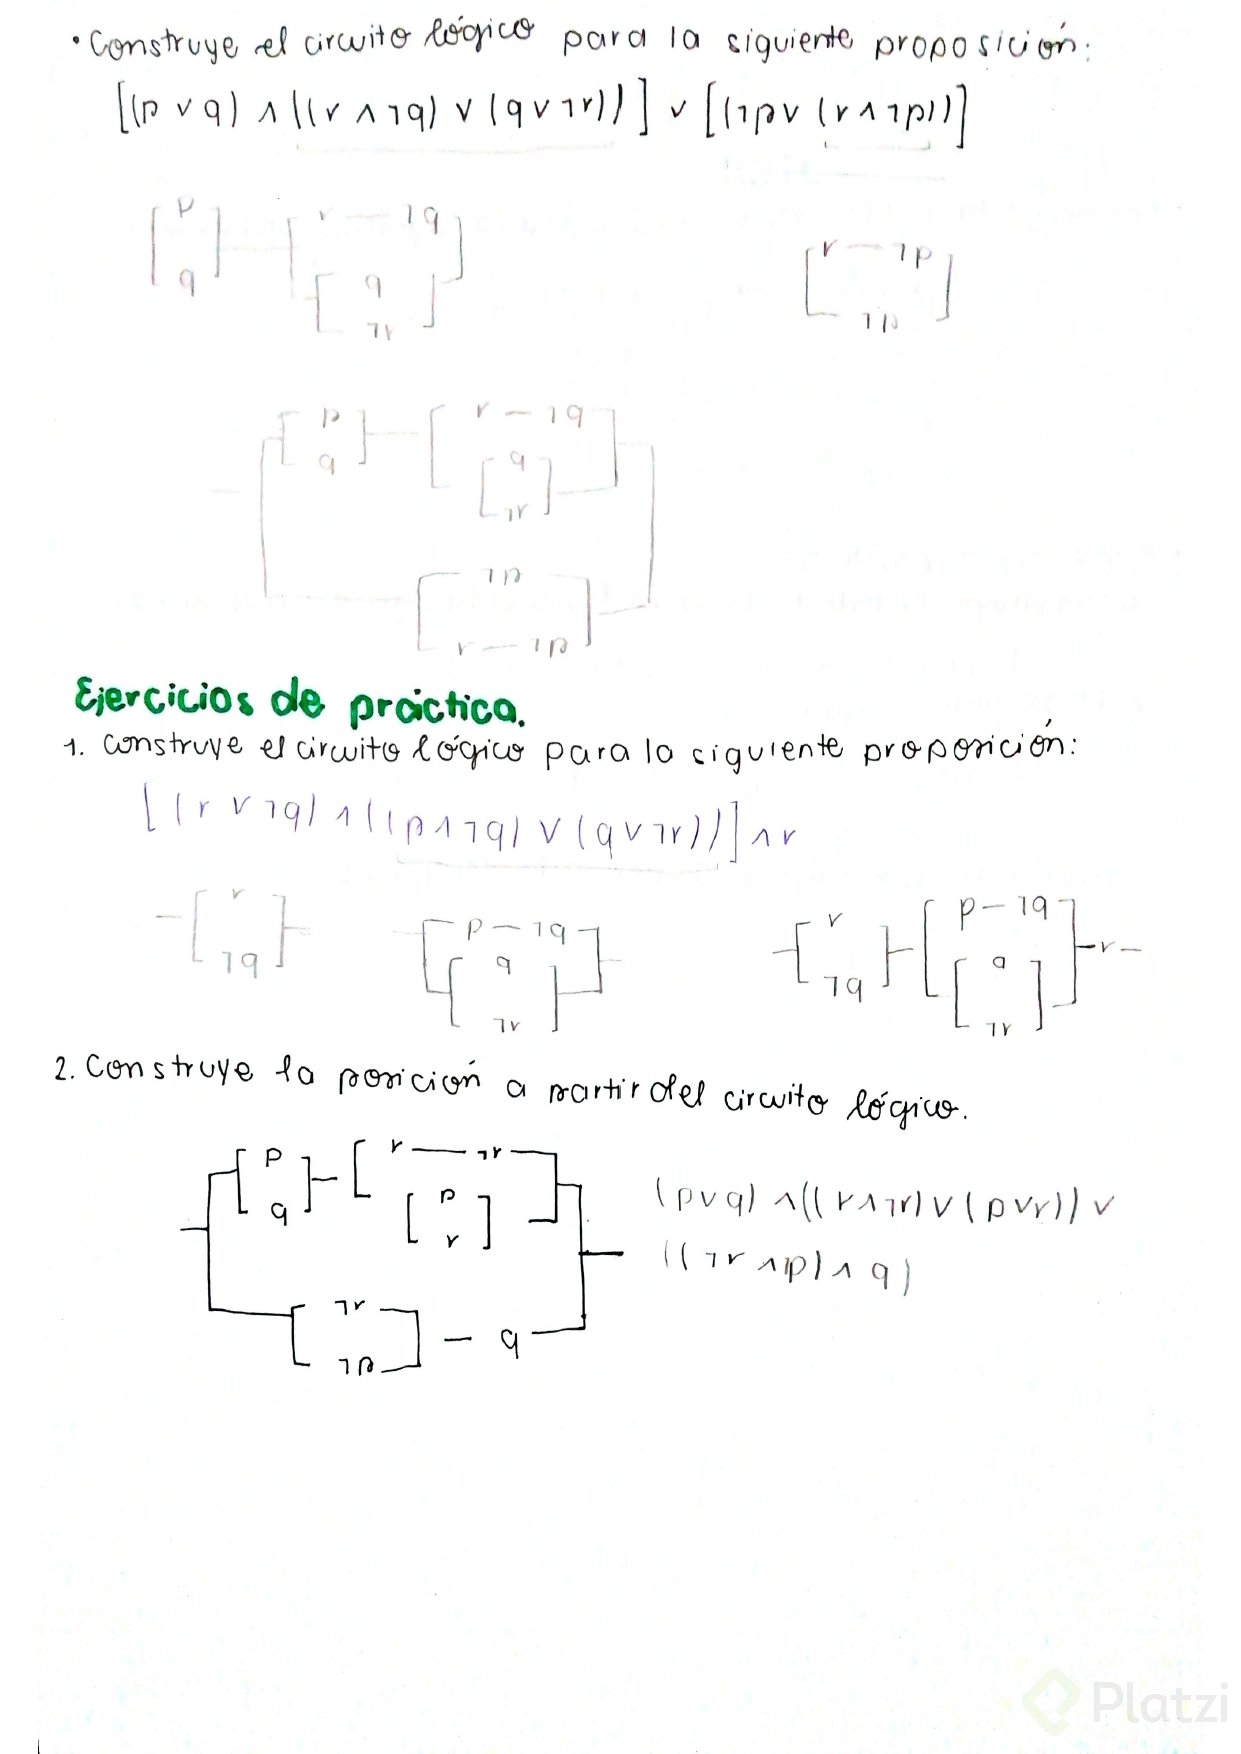 • Construye el circuito lógico para la siguiente proposición:
[(p ∨ q) ∧ ((r ∧ ¬q) ∨ (q ∨ ¬r))] ∨ [(¬p ∨ (r ∧ ¬p))]
p
r — ¬q
r — ¬p
q
q
¬r
¬p
p
r — ¬q
q
q
¬r
¬p
r — ¬p
Ejercicios de práctica.
1. Construye el circuito lógico para la siguiente proposición:
[(r ∨ ¬q) ∧ ((p ∧ ¬q) ∨ (q ∨ ¬r))] ∧ r
r
p — ¬q
r
p — ¬q
r
¬q
q
¬q
q
¬r
¬r
2. Construye la posición a partir del circuito lógico.
p
r — ¬r
q
p
r
(p ∨ q) ∧ ((r ∧ ¬r) ∨ (p ∨ r)) ∨
((¬r ∧ p) ∧ q)
¬r
q
¬p
Platzi